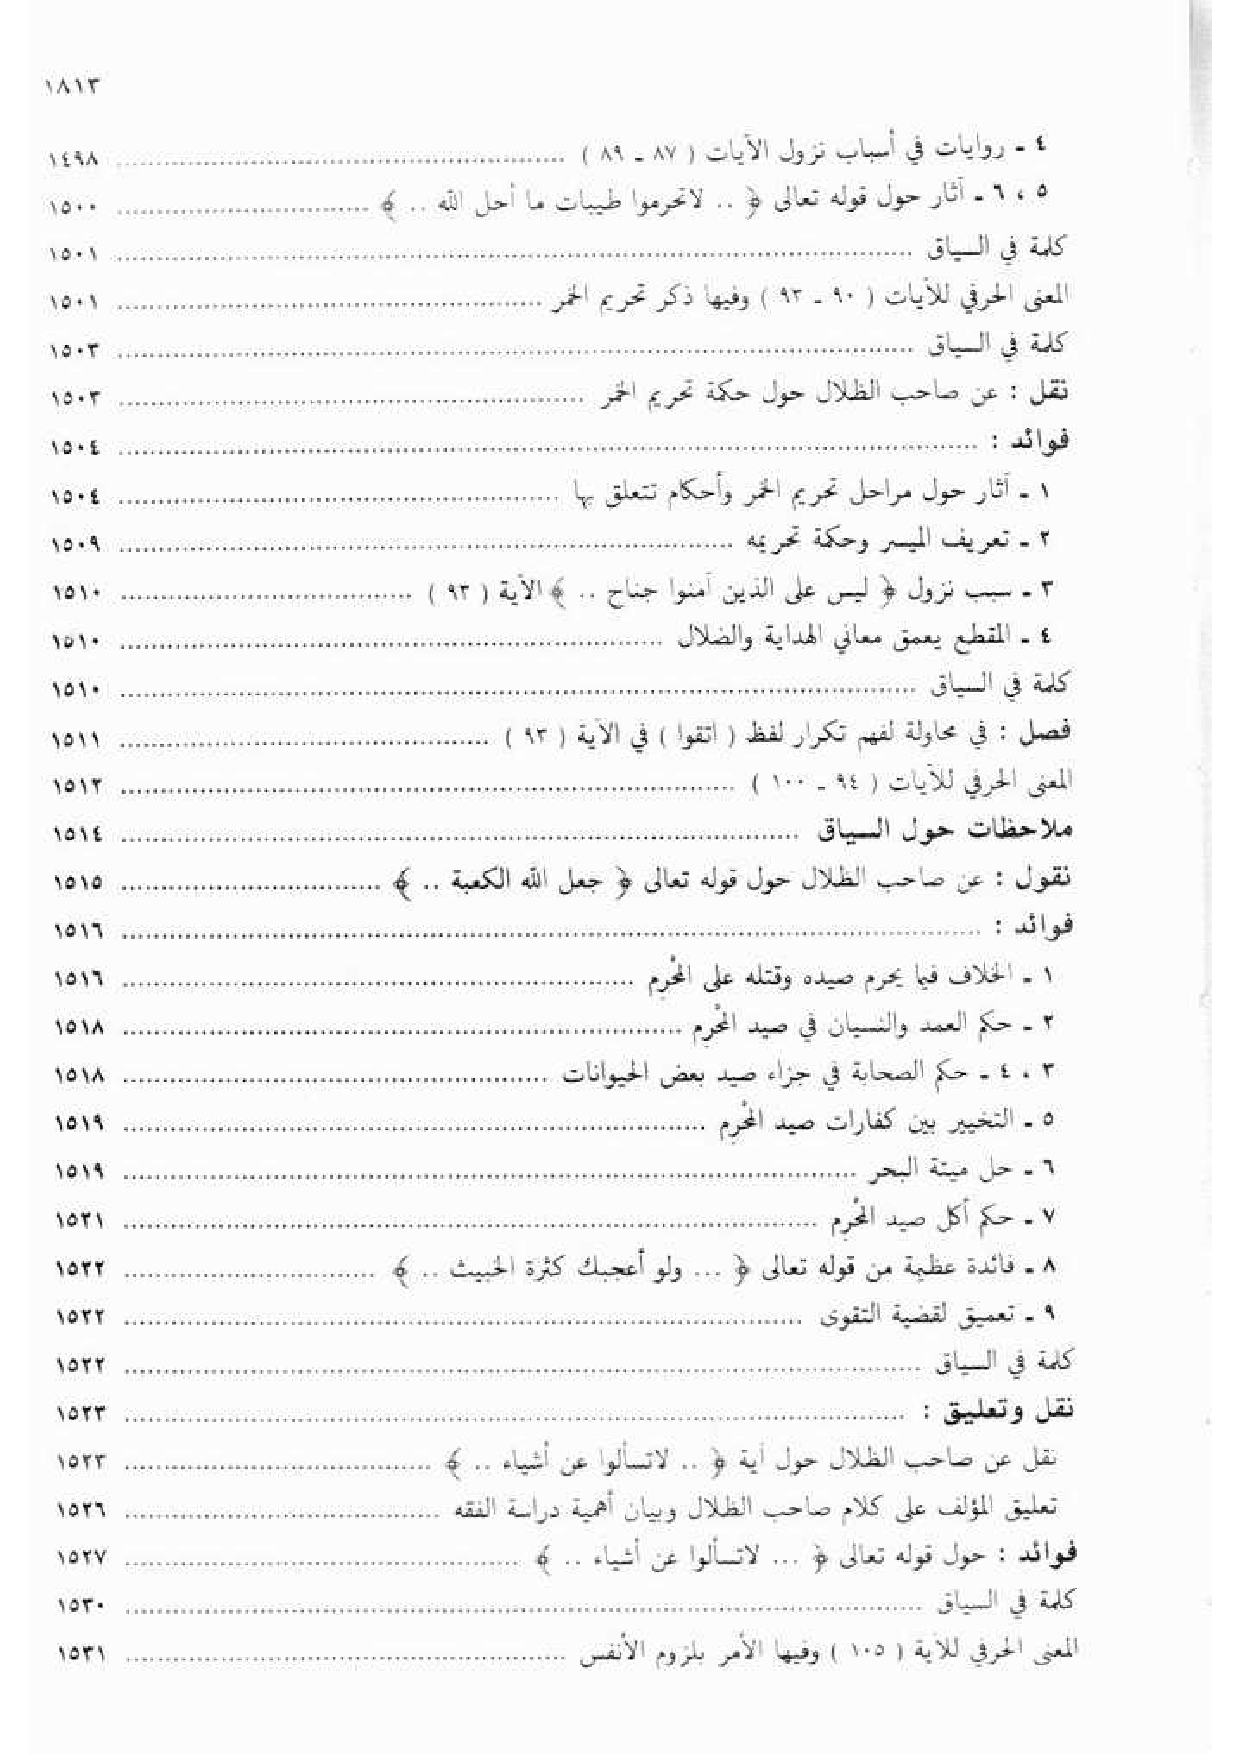 ١٨١٣
٤ ـ روايات في أسباب نزول الآيات ( ٨٧ ـ ٨٩ ) ........ ١٤٩٨
٥ ، ٦ ـ آثار حول قوله تعالى ﴿ .. لاتحرموا طيبات ما أحل الله .. ﴾ ........ ١٥٠٠
كلمة في السياق ........ ١٥٠١
المعنى الحرفي للآيات ( ٩٠ ـ ٩٣ ) وفيها ذكر تحريم الخمر ........ ١٥٠١
كلمة في السياق ........ ١٥٠٣
نقل : عن صاحب الظلال حول حكمة تحريم الخمر ........ ١٥٠٣
فوائد : ........ ١٥٠٤
١ ـ آثار حول مراحل تحريم الخمر وأحكام تتعلق بها ........ ١٥٠٤
٢ ـ تعريف الميسر وحكمة تحريمه ........ ١٥٠٩
٣ ـ سبب نزول ﴿ ليس على الذين آمنوا جناح .. ﴾ الآية ( ٩٣ ) ........ ١٥١٠
٤ ـ المقطع يعمق معاني الهداية والضلال ........ ١٥١٠
كلمة في السياق ........ ١٥١٠
فصل : في محاولة لفهم تكرار لفظ ( اتقوا ) في الآية ( ٩٣ ) ........ ١٥١١
المعنى الحرفي للآيات ( ٩٤ ـ ١٠٠ ) ........ ١٥١٢
ملاحظات حول السياق ........ ١٥١٤
نقول : عن صاحب الظلال حول قوله تعالى ﴿ جعل الله الكعبة .. ﴾ ........ ١٥١٥
فوائد : ........ ١٥١٦
١ ـ الخلاف فيما يحرم صيده وقتله على المُحْرِم ........ ١٥١٦
٢ ـ حكم العمد والنسيان في صيد المُحْرِم ........ ١٥١٨
٣ ، ٤ ـ حكم الصحابة في جزاء صيد بعض الحيوانات ........ ١٥١٨
٥ ـ التخيير بين كفارات صيد المُحْرِم ........ ١٥١٩
٦ ـ حل ميتة البحر ........ ١٥١٩
٧ ـ حكم أكل صيد المُحْرِم ........ ١٥٢١
٨ ـ فائدة عظيمة من قوله تعالى ﴿ ... ولو أعجبك كثرة الخبيث .. ﴾ ........ ١٥٢٢
٩ ـ تعميق لقضية التقوى ........ ١٥٢٢
كلمة في السياق ........ ١٥٢٢
نقل وتعليق : ........ ١٥٢٣
نقل عن صاحب الظلال حول آية ﴿ .. لاتسألوا عن أشياء .. ﴾ ........ ١٥٢٣
تعليق المؤلف على كلام صاحب الظلال وبيان أهمية دراسة الفقه ........ ١٥٢٦
فوائد : حول قوله تعالى ﴿ ... لاتسألوا عن أشياء .. ﴾ ........ ١٥٢٧
كلمة في السياق ........ ١٥٣٠
المعنى الحرفي للآية ( ١٠٥ ) وفيها الأمر بلزوم الأنفس ........ ١٥٣١